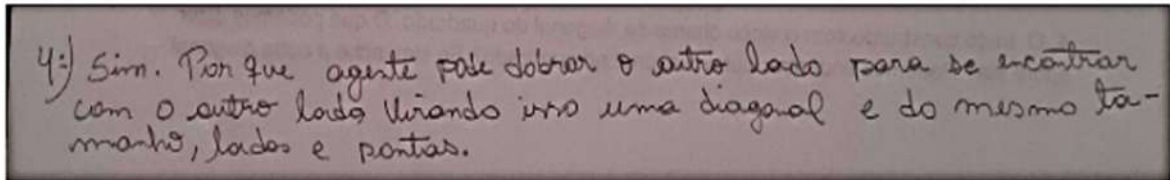 4:) Sim. Por que agente pode dobrar o outro lado para se encontrar
com o outro lado, virando isso uma diagonal e do mesmo ta-
manho, lados e pontas.